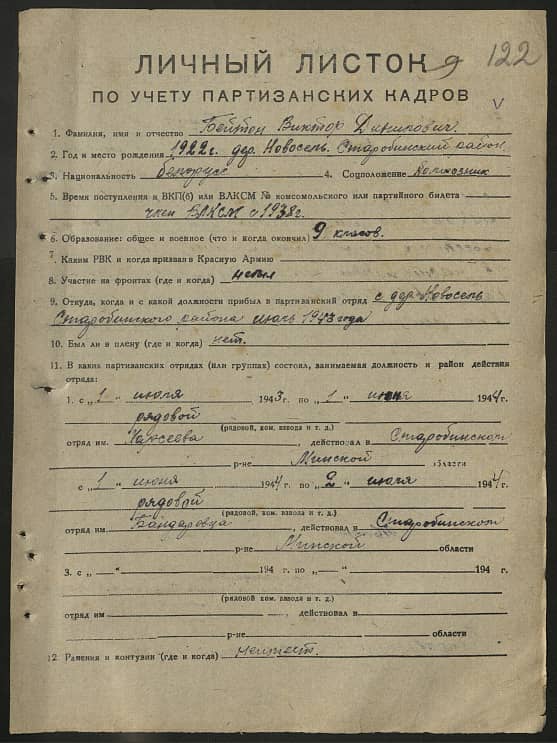 122
ЛИЧНЫЙ ЛИСТОК
ПО УЧЕТУ ПАРТИЗАНСКИХ КАДРОВ
V
1. Фамилия, имя и отчество Бейтон Виктор Данилович.
2. Год и место рождения 1922г. дер. Новосель. Старобинский район
3. Национальность белорусс 4. Соцположение Колхозник
5. Время поступления в ВКП(б) или ВЛКСМ № комсомольского или партийного билета
член ВЛКСМ с 1938г.
6. Образование: общее и военное (что и когда окончил) 9 класов.
7. Каким РВК и когда призван в Красную Армию
8. Участие на фронтах (где и когда) небыл
9. Откуда, когда и с какой должности прибыл в партизанский отряд с дер. Новосель
Старобинского района июль 1943 года
10. Был ли в плену (где и когда) нет.
11. В каких партизанских отрядах (или группах) состоял, занимаемая должность и район действия
отряда:
1. с „1“ июля 1943 г. по „1“ июня 1944 г.
рядовой
(рядовой, ком. взвода и т. д.)
отряд им. , действовал в Старобинском
р-не Минской области
с „1“ июня 1944 г. по „2“ июля 1944 г.
рядовой
(рядовой, ком. взвода и т. д.)
отряд им , действовал в Старобинском
р-не Минской области
3. с „ “ 194 г. по „ “ 194 г.
(рядовой, ком. взвода и т. д.)
отряд им , действовал в
р-не области
12. Ранения и контузии (где и когда)